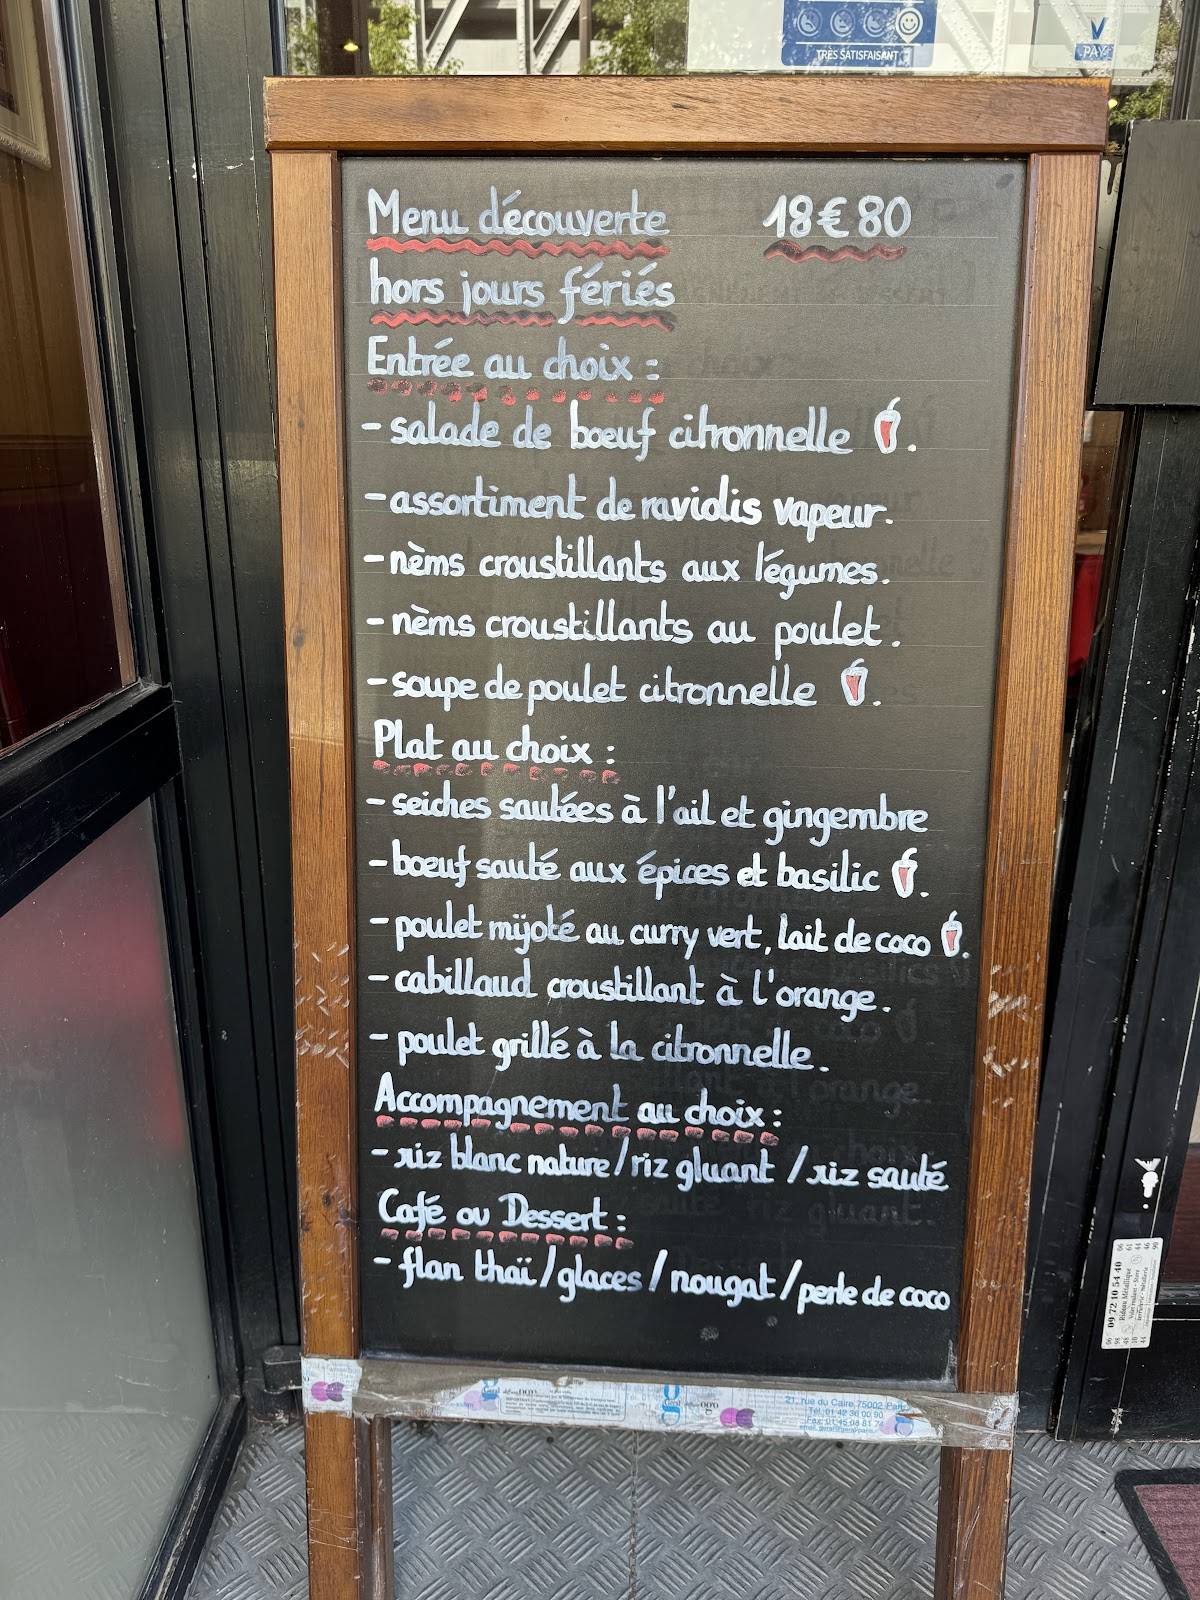 TRÈS SATISFAISANT
PAY
Menu découverte 18€80
hors jours fériés
Entrée au choix :
- salade de bœuf citronnelle .
- assortiment de raviolis vapeur.
- nèms croustillants aux légumes.
- nèms croustillants au poulet.
- soupe de poulet citronnelle .
Plat au choix :
- seiches sautées à l'ail et gingembre
- bœuf sauté aux épices et basilic .
- poulet mijoté au curry vert, lait de coco .
- cabillaud croustillant à l'orange.
- poulet grillé à la citronnelle.
Accompagnement au choix :
- riz blanc nature / riz gluant / riz sauté
Café ou Dessert :
- flan thaï / glaces / nougat / perle de coco
21, rue du Caire 75002 Paris
Tél. 01 42 36 00 90
Fax: 01 45 08 81 7
09 72 10 54 40
Rideau Métallique